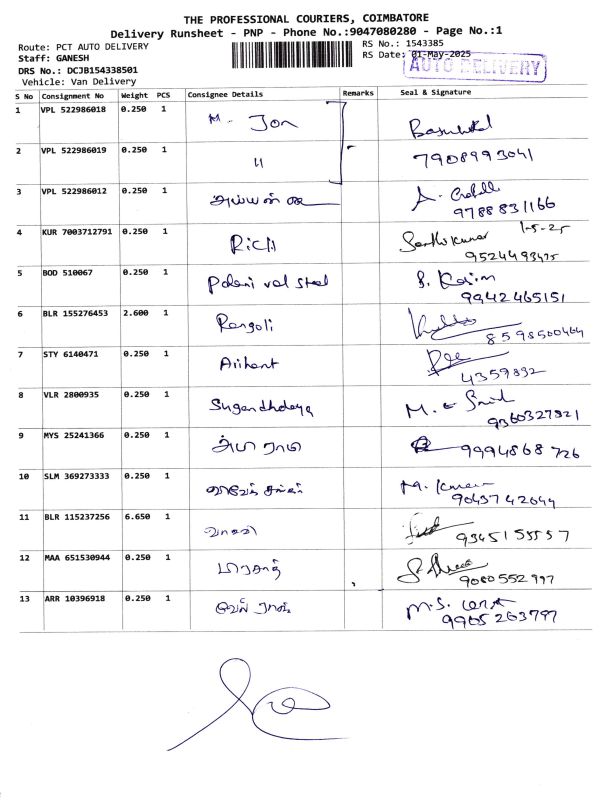 THE PROFESSIONAL COURIERS, COIMBATORE
Delivery Runsheet - PNP - Phone No.:9047080280 - Page No.:1
Route: PCT AUTO DELIVERY
RS No.: 1543385
Staff: GANESH
RS Date: 01-May-2025
AUTO DELIVERY
DRS No.: DCJB154338501
Vehicle: Van Delivery
S No Consignment No Weight PCS Consignee Details Remarks Seal & Signature
1 VPL 522986018 0.250 1 M. Jon
2 VPL 522986019 0.250 1 11 7908993041
3 VPL 522986012 0.250 1 A.
9788831166
4 KUR 7003712791 0.250 1 Rich Santhikumar 1-5-25
9524493475
5 BOD 510067 0.250 1 Palani vel steel S. Kasim
9942465151
6 BLR 155276453 2.600 1 Rangoli
8598500464
7 STY 6140471 0.250 1 Arihant
4359832
8 VLR 2800935 0.250 1 Sugandhalaya M.
9360327821
9 MYS 25241366 0.250 1 9994868726
10 SLM 369273333 0.250 1 M. Kumar
9043742644
11 BLR 115237256 6.650 1 9345155557
12 MAA 651530944 0.250 1 பிரசாத்
9080552997
13 ARR 10396918 0.250 1 M.S.
9965263797